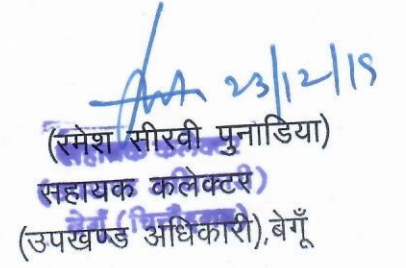 23/12/19
(रमेश सीरवी पुनाडिया)
सहायक कलेक्टर
(उपखण्ड अधिकारी),बेगूँ